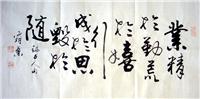 業精
於勤荒
於嬉
行
成於思
毀於
隨